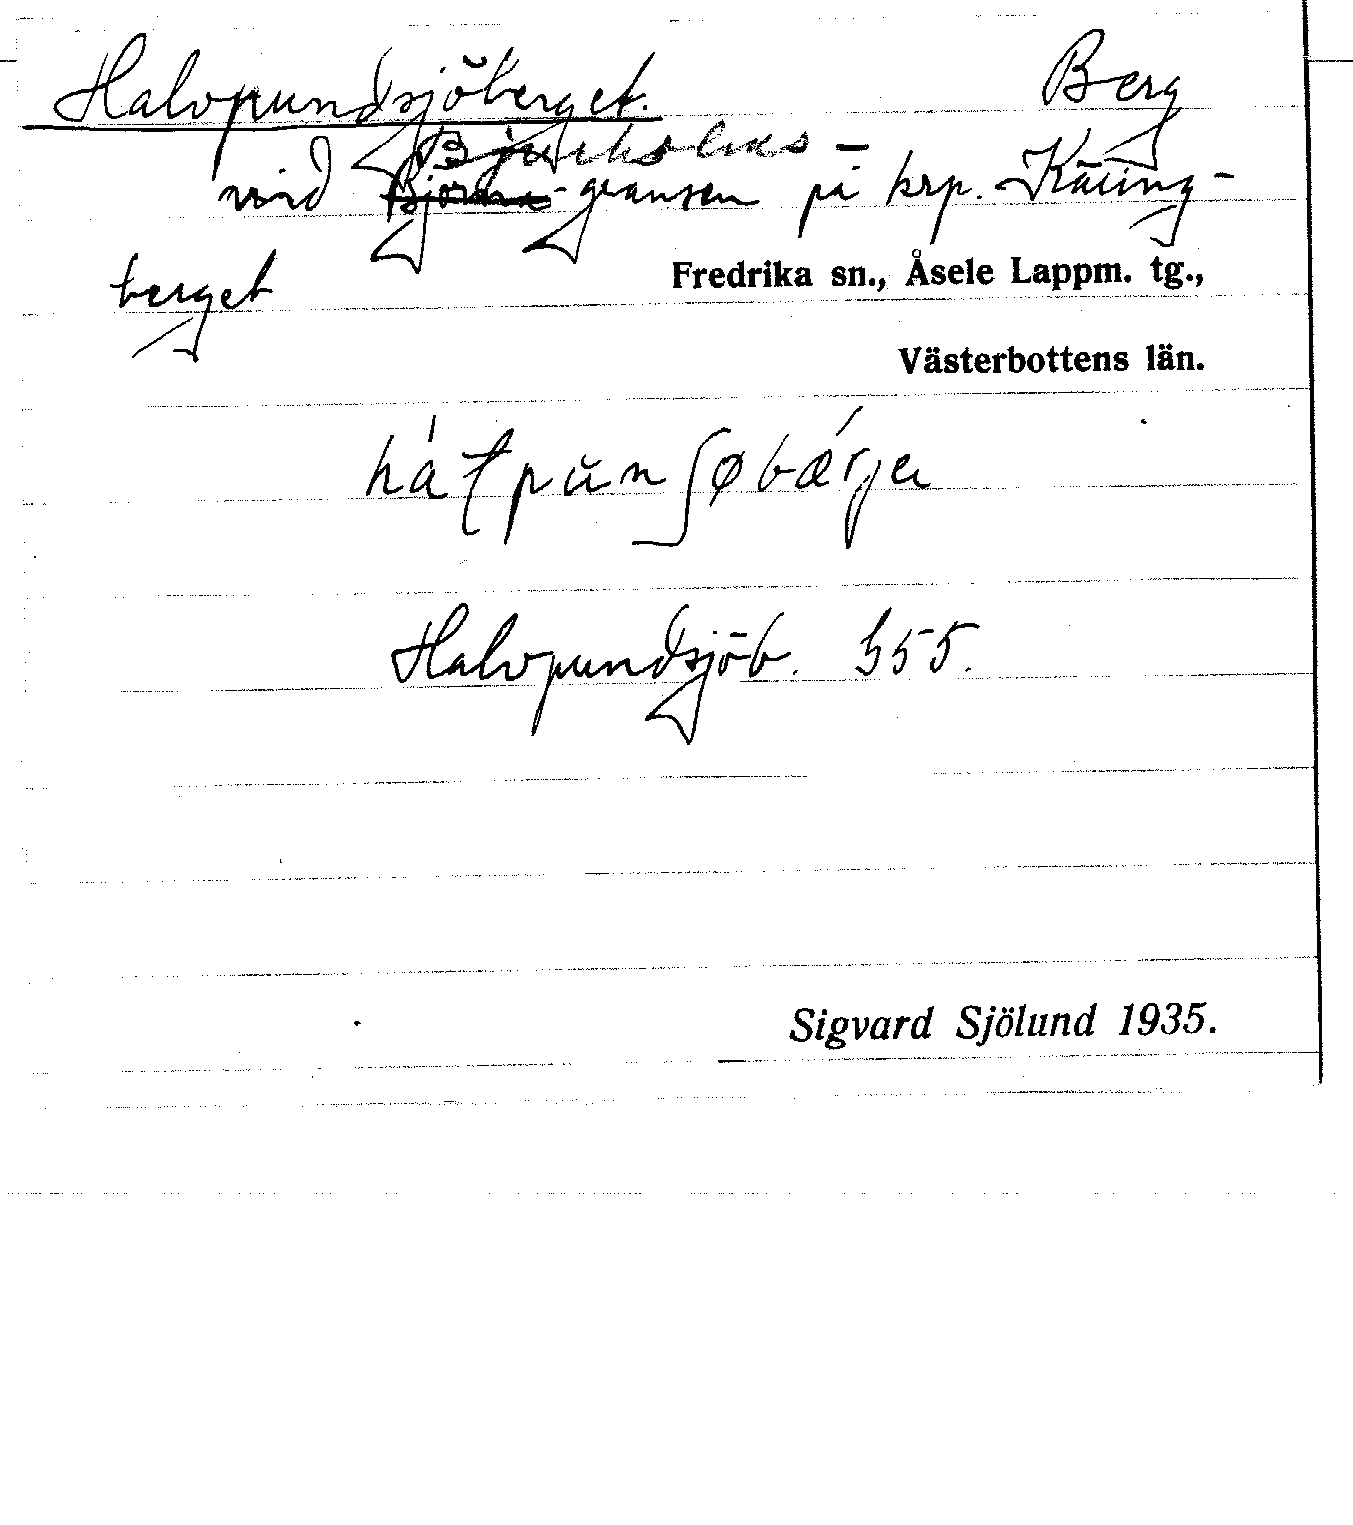 Halvpundsjöberget. Berg
Björkholms-
vid Bjorna-gränsen på krp. Käring-
berget
Fredrika sn., Åsele Lappm. tg.,
Västerbottens län.
Halvpundsjöb. 555.
Sigvard Sjölund 1935.